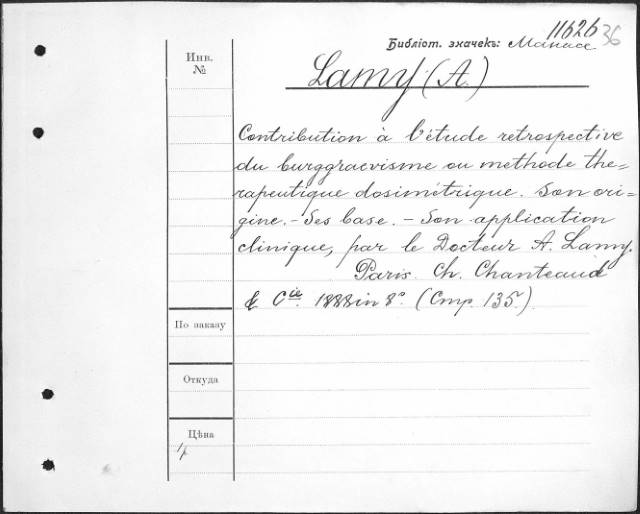 11626
36
Библіот. значекъ: Манасс
Инв.
№
Lamy (A.)
Contribution à l'étude retrospective
du burggraevisme ou methode the=
rapeutique dosimétrique. Son ori=
gine. - Ses base. - Son application
clinique, par le Docteur A. Lamy.
Paris. Ch. Chanteaud
& Cie. 1888 in 8°. (Стр. 135.)
По заказу
Откуда
Цѣна